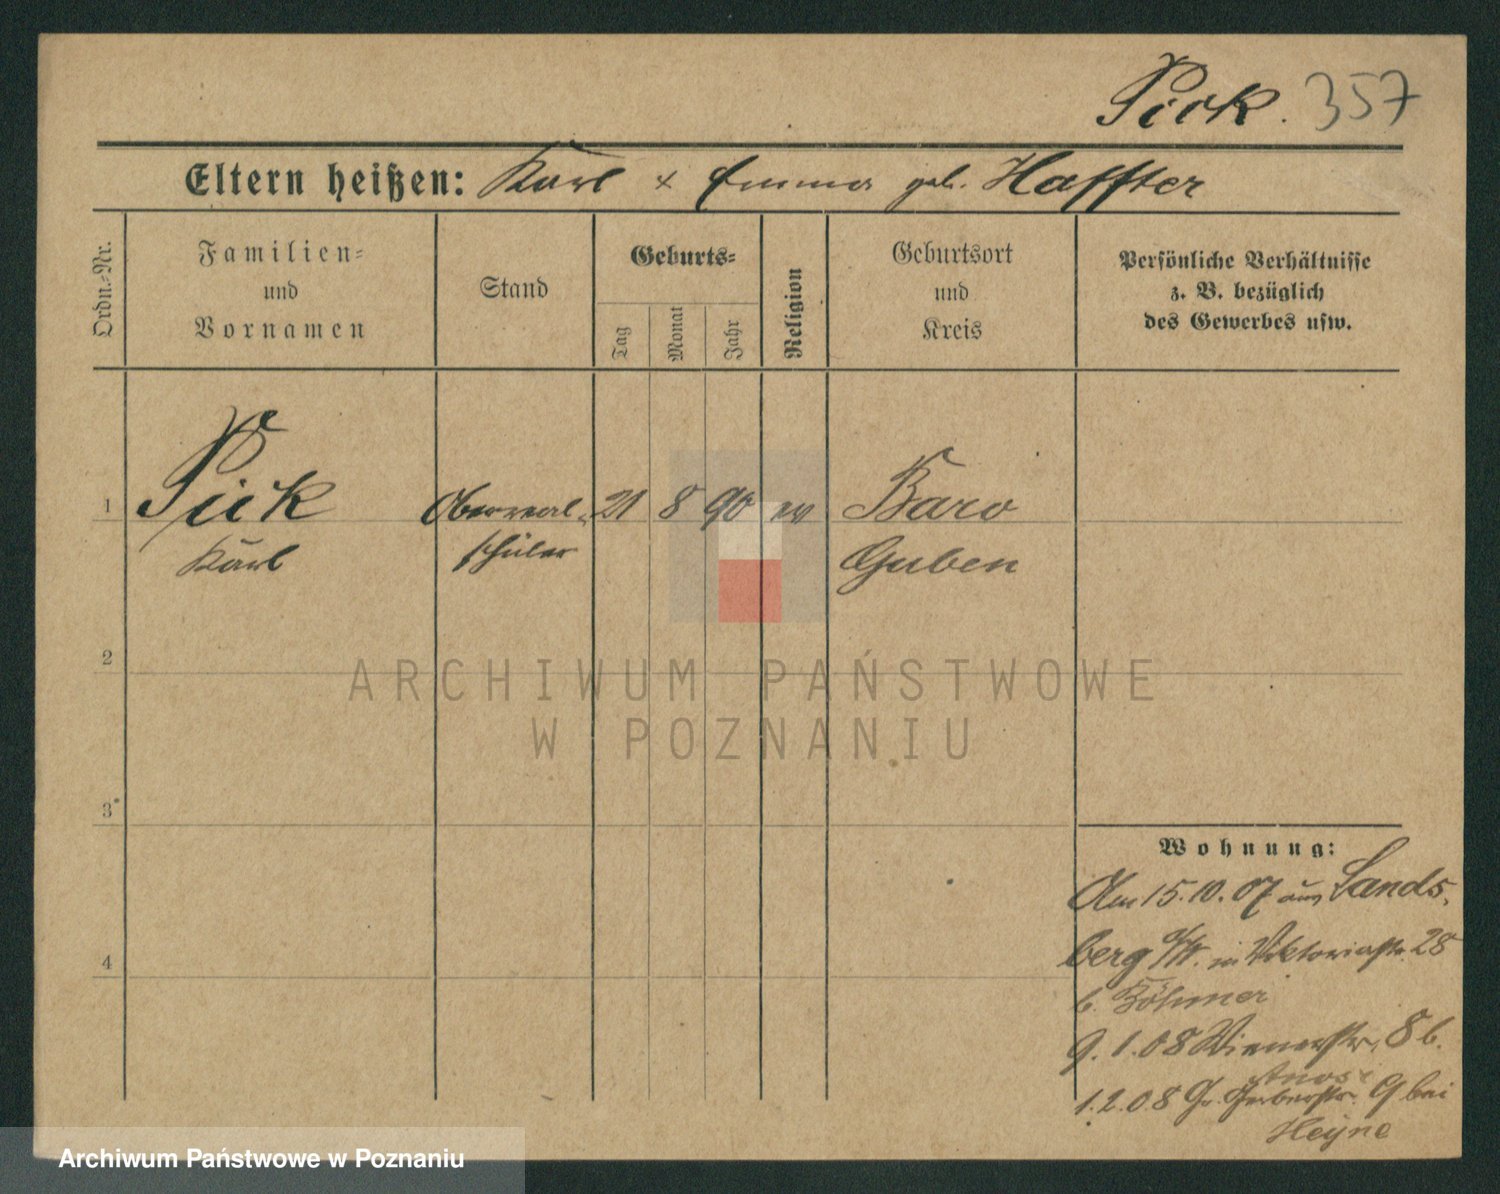 Pick. 357
Eltern heißen: Karl & Emma geb. Haffter
Ordn.-Nr.
Familien-
und
Vornamen
Stand
Geburts-
Tag
Monat
Jahr
Religion
Geburtsort
und
Kreis
Persönliche Verhältnisse
z. B. bezüglich
des Gewerbes usw.
1 Pick Oberreal- 21 8 90 ev Baro
Karl schüler Guben
2
ARCHIWUM PAŃSTWOWE
W POZNANIU
3
Wohnung:
Am 15.10.07 aus Lands-
berg a/W. in Viktoriastr. 28
b. Böhmer
4
9.1.08 Wienerstr. 8 b.
1.2.08 Gr. Gerberstr. 9 bei
Heyne
Archiwum Państwowe w Poznaniu